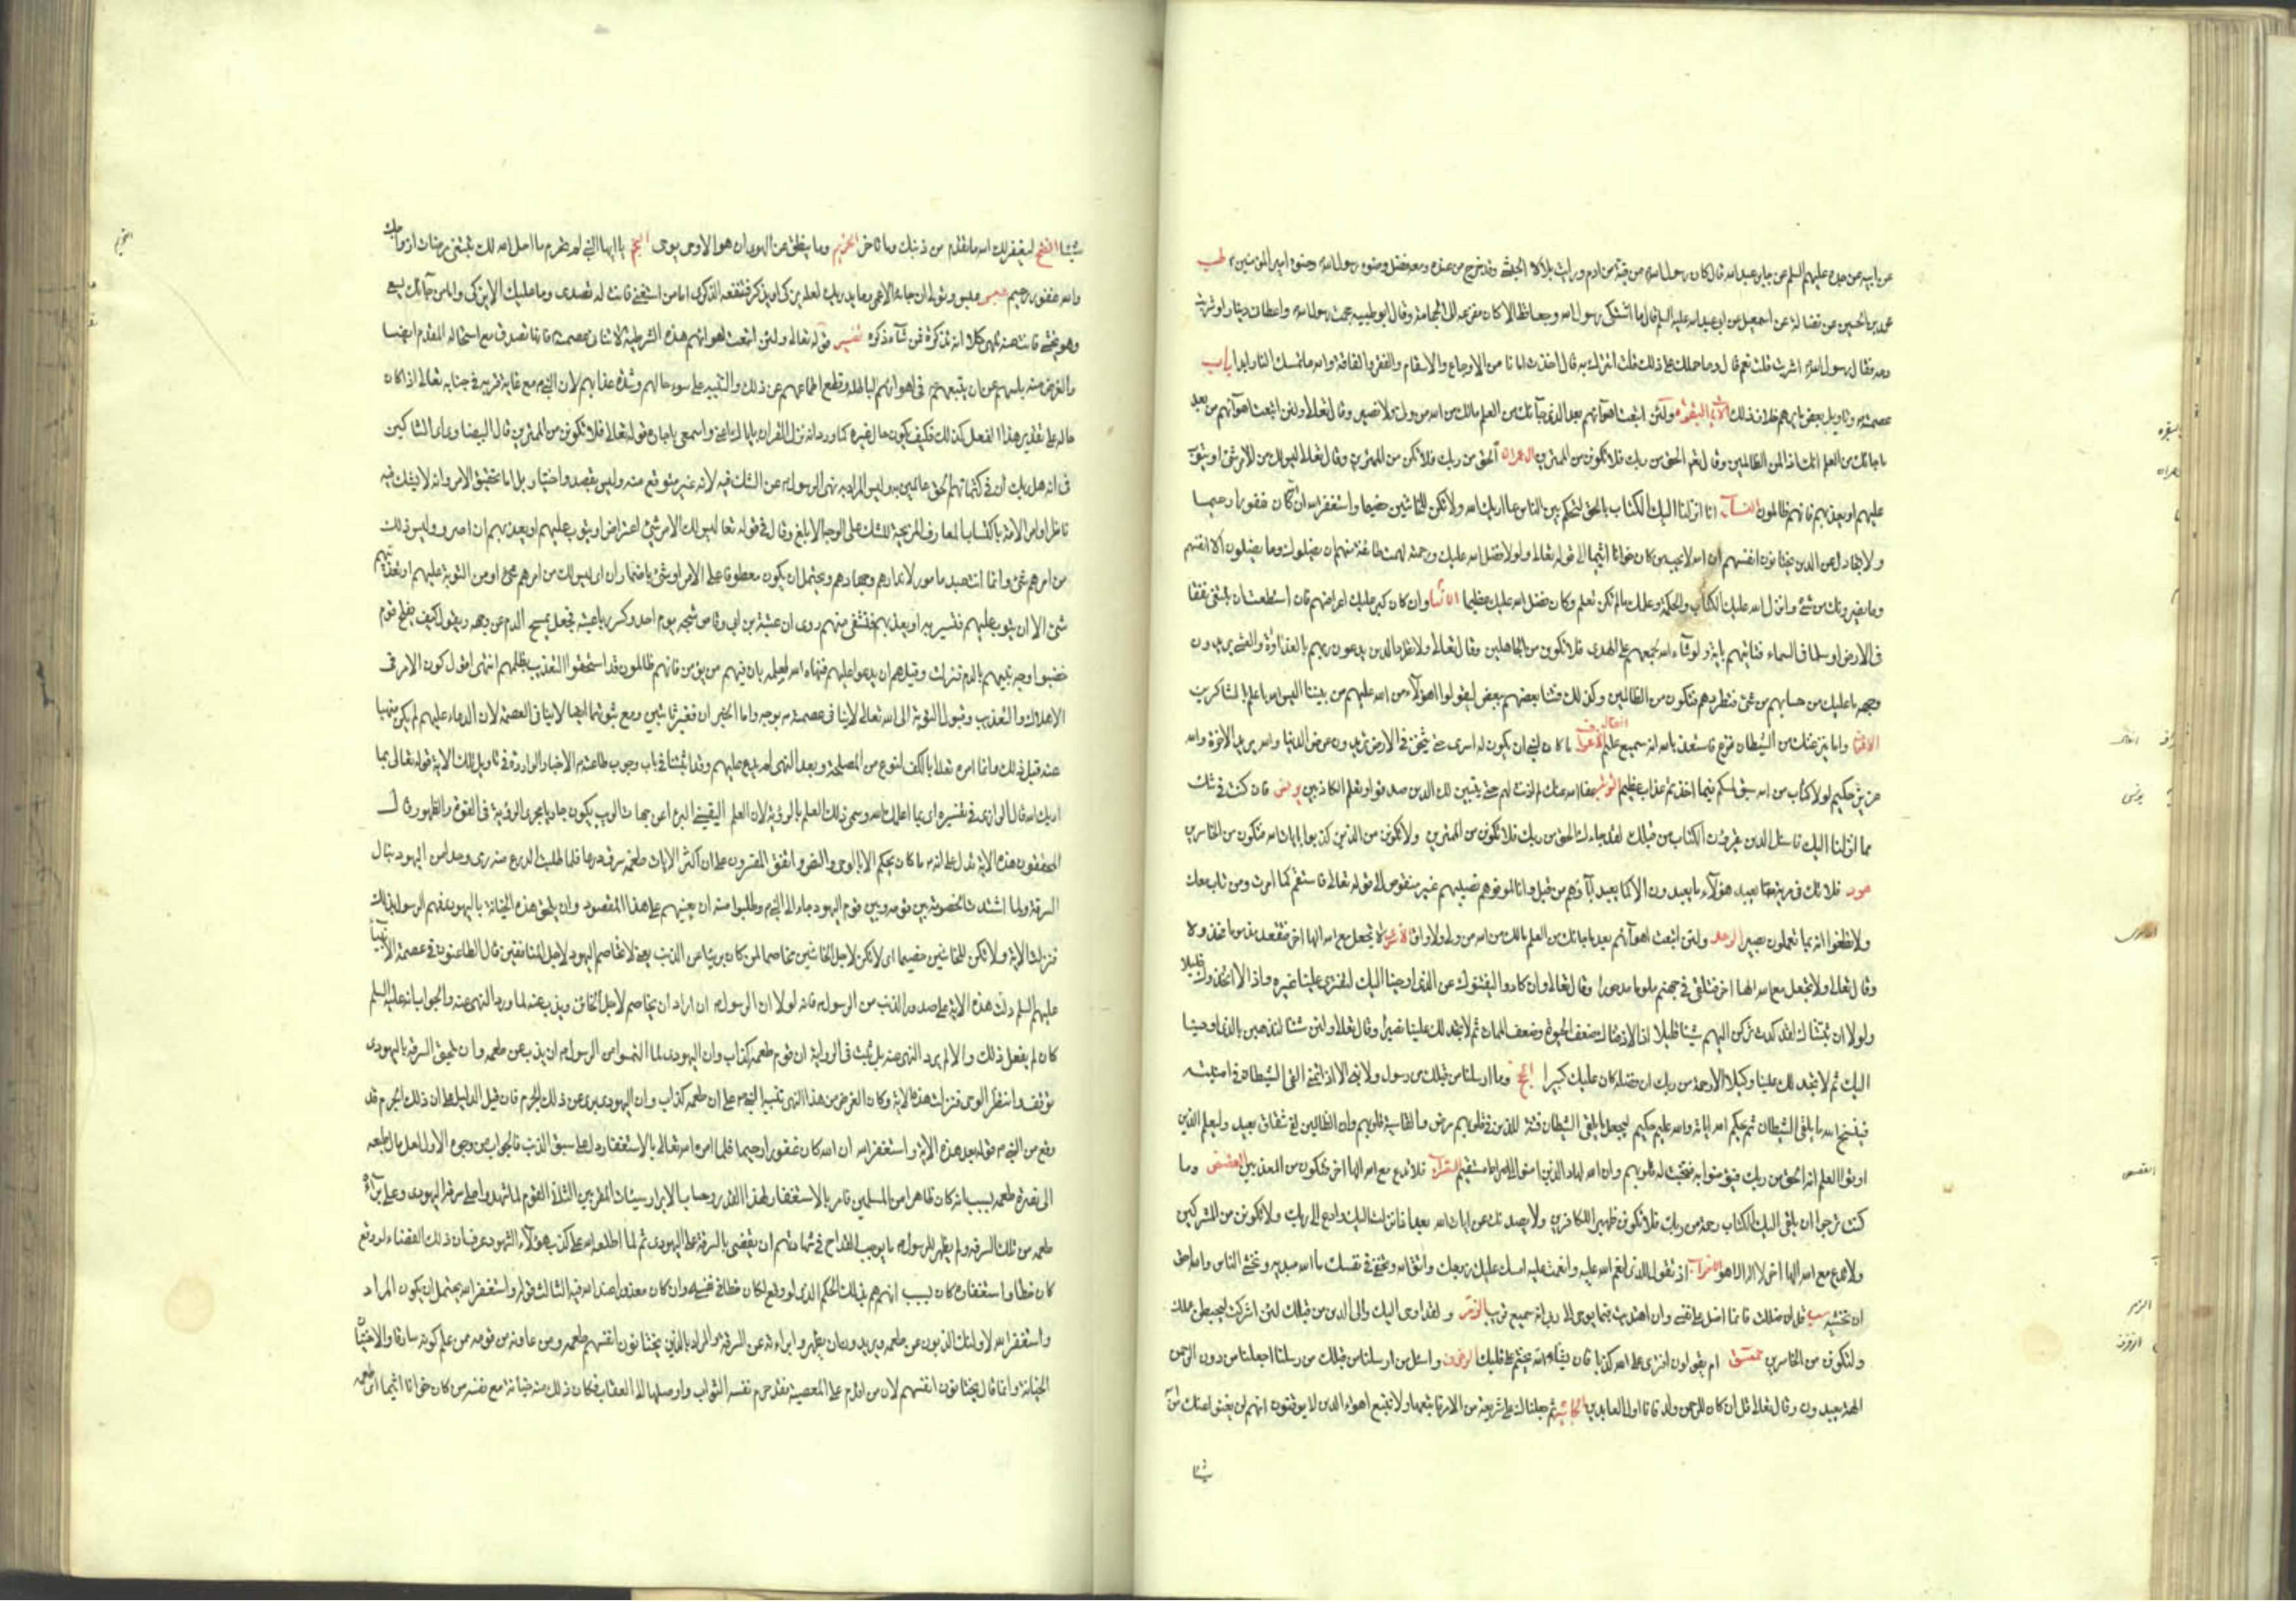 عن ابيه عن جده عليهم السلم عن جابر بن عبد الله قال كان رسول الله ص في قبة من ادم ورايت بلالا الحبشي وقد خرج من عنده ومعه فضل وضوء رسول الله
محمد بن الحسين عن عن اسمعيل عن ابي عبد الله عليه السلم قال ما اشتكى رسول الله وجعا قط الا كان مفزعه الى الحجامة وقال ابو طيبة حجمت رسول الله ص واعطاني دينارا وشربت
دمه فقال رسول الله اشربت قلت نعم قال وما حملك على ذلك قلت اتبرك به قال اخذت امانا من الاوجاع والاسقام والفقر والفاقة والله ما تمسك النار ابدا باب
عصمته وتاويل بعض ما يوهم خلاف ذلك الايات البقرة ولئن اتبعت اهواءهم بعد الذي جاءك من العلم مالك من الله من ولي ولا نصير وقال تعالى ولئن اتبعت اهواءهم من بعد
ما جاءك من العلم انك اذا لمن الظالمين وقال تعالى الحق من ربك فلا تكونن من الممترين ال عمران الحق من ربك فلا تكن من الممترين وقال تعالى ليس لك من الامر شئ او يتوب
عليهم او يعذبهم فانهم ظالمون النساء انا انزلنا اليك الكتاب بالحق لتحكم بين الناس بما اريك الله ولا تكن للخائنين خصيما واستغفر الله ان الله كان غفورا رحيما
ولا تجادل عن الذين يختانون انفسهم ان الله لا يحب من كان خوانا اثيما الى قوله تعالى ولولا فضل الله عليك ورحمته لهمت طائفة منهم ان يضلوك وما يضلون الا انفسهم
وما يضرونك من شئ وانزل الله عليك الكتاب والحكمة وعلمك مالم تكن تعلم وكان فضل الله عليك عظيما الانعام وان كان كبر عليك اعراضهم فان استطعت ان تبتغي نفقا
في الارض او سلما في السماء فتاتيهم باية ولو شاء الله لجمعهم على الهدى فلا تكونن من الجاهلين وقال تعالى ولا تطرد الذين يدعون ربهم بالغداوة والعشي يريدون
وجهه ما عليك من حسابهم من شئ فتطردهم فتكون من الظالمين وكذلك فتنا بعضهم ببعض ليقولوا اهؤلاء من الله عليهم من بيننا اليس الله باعلم بالشاكرين
واما ينزغنك من الشيطان نزغ فاستعذ بالله انه سميع عليم الانفال ما كان لنبي ان يكون له اسرى حتى يثخن في الارض تريدون عرض الدنيا والله يريد الاخرة والله
عزيز حكيم لولا كتاب من الله سبق لمسكم فيما اخذتم عذاب عظيم التوبة عفا الله عنك لم اذنت لهم حتى يتبين لك الذين صدقوا وتعلم الكاذبين يونس فان كنت في شك
مما انزلنا اليك فاسئل الذين يقرؤن الكتاب من قبلك لقد جاءك الحق من ربك فلا تكونن من الممترين ولا تكونن من الذين كذبوا بايات الله فتكون من الخاسرين
هود فلا تك في مرية مما يعبد هؤلاء ما يعبدون الا كما يعبد آباؤهم من قبل وانا لموفوهم نصيبهم غير منقوص الى قوله تعالى فاستقم كما امرت ومن تاب معك
ولا تطغوا انه بما تعملون بصير الرعد ولئن اتبعت اهواءهم بعد ما جاءك من العلم مالك من الله من ولي ولا واق الاسرى لا تجعل مع الله الها اخر فتقعد مذموما مخذولا
وقال تعالى ولا تجعل مع الله الها اخر فتلقى في جهنم ملوما مدحورا وقال تعالى وان كادوا ليفتنونك عن الذي اوحينا اليك لتفتري علينا غيره واذا لاتخذوك خليلا
ولولا ان ثبتناك لقد كدت تركن اليهم شيئا قليلا اذا لاذقناك ضعف الحيوة وضعف الممات ثم لا تجد لك علينا نصيرا وقال تعالى ولئن شئنا لنذهبن بالذي اوحينا
اليك ثم لا تجد لك علينا وكيلا الا رحمة من ربك ان فضله كان عليك كبيرا الحج وما ارسلنا من قبلك من رسول ولا نبي الا اذا تمنى القى الشيطان في امنيته
فينسخ الله ما يلقي الشيطان ثم يحكم الله اياته والله عليم حكيم ليجعل ما يلقي الشيطان فتنة للذين في قلوبهم مرض والقاسية قلوبهم وان الظالمين لفي شقاق بعيد وليعلم الذين
اوتوا العلم انه الحق من ربك فيؤمنوا به فتخبت له قلوبهم وان الله لهاد الذين امنوا الى صراط مستقيم الشعراء فلا تدع مع الله الها اخر فتكون من المعذبين القصص وما
كنت ترجوا ان يلقى اليك الكتاب الا رحمة من ربك فلا تكونن ظهيرا للكافرين ولا يصدنك عن ايات الله بعد اذ انزلت اليك وادع الى ربك ولا تكونن من المشركين
ولا تدع مع الله الها اخر لا اله الا هو الاحزاب اذ تقول للذي انعم الله عليه وانعمت عليه امسك عليك زوجك واتق الله وتخفي في نفسك ما الله مبديه وتخشى الناس والله احق
ان تخشيه سبا قل ان ضللت فانما اضل على نفسي وان اهتديت فبما يوحي الي ربي انه سميع قريب الزمر ولقد اوحي اليك والى الذين من قبلك لئن اشركت ليحبطن عملك
ولتكونن من الخاسرين حمعسق ام يقولون افترى على الله كذبا فان يشاء الله يختم على قلبك الزخرف واسئل من ارسلنا من قبلك من رسلنا اجعلنا من دون الرحمن
الهة يعبدون وقال تعالى قل ان كان للرحمن ولد فانا اول العابدين الجاثية ثم جعلناك على شريعة من الامر فاتبعها ولا تتبع اهواء الذين لا يعلمون انهم لن يغنوا عنك من الله
شيئا
شيئا الفتح ليغفر لك الله ما تقدم من ذنبك وما تاخر النجم وما ينطق عن الهوى ان هو الا وحي يوحى التحريم يا ايها النبي لم تحرم ما احل الله لك تبتغي مرضات ازواجك
والله غفور رحيم عبس عبس وتولى ان جاءه الاعمى وما يدريك لعله يزكى او يذكر فتنفعه الذكرى اما من استغنى فانت له تصدى وما عليك الا يزكى واما من جاءك يسعى
وهو يخشى فانت عنه تلهى كلا انه تذكرة فمن شاء ذكره تفسير قوله تعالى ولئن اتبعت اهواءهم هذه الشرطية لا تنافي عصمته فانها تصدق مع استحالة المقدم ايضا
والغرض منه ياسهم عن ان يتبعهم في اهوائهم الباطلة وقطع اطماعهم عن ذلك والتنبيه على سوء حالهم وشدة عذابهم لان النبي ص مع غاية قربه في جنابه تعالى اذا كان
حاله على تقدير هذا الفعل كذلك فكيف يكون حال غيره كما ورد انه نزل القران باياك اعني واسمعي يا جارة قوله تعالى فلا تكونن من الممترين قال البيضاوي اي الشاكين
في انه من ربك او في كتمانهم الحق عالمين به وليس المراد به نهي الرسول عن الشك فيه لانه غير متوقع منه وليس بقصد واختيار بل اما تحقيق الامر وانه لا يشك فيه
ناظر او امر الامة باكتساب المعارف المزيحة للشك على الوجه الابلغ وقال في قوله تعالى ليس لك من الامر شئ اعتراض او يتوب عليهم او يعذبهم ان اصروا وليس لك
من امرهم شئ وانما انت عبد مامور لانذارهم وجهادهم ويحتمل ان يكون معطوفا على الامر او شئ باضمار ان اي ليس لك من امرهم شئ او من التوبة عليهم او تعذيبهم
شئ الا ان يتوب عليهم فتسر به او يعذبهم فتشتفي منهم روى ان عتبة بن ابي وقاص شجه يوم احد وكسر رباعيته فجعل يمسح الدم عن وجهه ويقول كيف يفلح قوم
خضبوا وجه نبيهم بالدم فنزلت وقيل هم ان يدعو عليهم فنهاه الله لعلمه بان فيهم من يؤمن فانهم ظالمون قد استحقوا التعذيب بظلمهم انتهى اقول كون الامر في
الاهلاك والتعذيب وقبول التوبة الى الله تعالى لا ينافي عصمته بوجه واما الخبران فغير ثابتين ومع ثبوتهما ايضا لا ينافي العصمة لان الدعاء عليهم لم يكن منهيا
عنه قبل ذلك وانما امره تعالى بالكف لنوع من المصلحة وبعد النهي لم يدع عليهم وقد اثبتنا في باب وجوب طاعته الاخبار الواردة في تاويل تلك الاية قوله تعالى بما
اريك الله قال الرازي في تفسيره اي بما اعلمك الله وسمي ذلك العلم بالرؤية لان العلم اليقيني المبرء عن جهات الريب يكون جاريا مجرى الرؤية في القوة والظهور قال
المحققون هذه الاية تدل على انه ما كان يحكم الا بالوحي والنص واتفق المفسرون على ان اكثر الايات طعمة سرق درعا فلما طلبت الدرع منه رمى واحدا من اليهود بتلك
السرقة ولما اشتدت الخصومة بين قومه وبين قوم اليهود جاءوا الى النبي ص وطلبوا منه ان يعينهم على هذا المقصود وان يلحق هذه الخيانة باليهود فهم الرسول بذلك
فنزلت الاية ولا تكن للخائنين خصيما اي لا تكن لاجل الخائنين مخاصما لمن كان بريئا عن الذنب يعني لا تخاصم اليهود لاجل المنافقين قال الطاعنون في عصمة الانبياء
عليهم السلم دلت هذه الاية على صدور الذنب من الرسول فانه لولا ان الرسول اراد ان يخاصم لاجل الخائن ويذب عنه لما ورد النهي عنه والجواب انه عليه السلم
كان لم يفعل ذلك والا لم يرد النهي عنه بل ثبت في الرواية ان قوم طعمة لما التمسوا من الرسول ان يذب عن طعمة وان يلحق السرقة باليهودي
توقف وانتظر الوحي فنزلت هذه الاية وكان الغرض من هذا النهي تنبيه النبي ص على ان طعمة كذاب وان اليهودي برئ عن ذلك الجرم فان قيل الدليل على ان ذلك الجرم قد
وقع من النبي ص قوله بعد هذه الاية واستغفر الله ان الله كان غفورا رحيما فلما امره الله تعالى بالاستغفار دل على سبق الذنب فالجواب من وجوه الاول لعله مال طبعه
الى نصرة طعمة بسبب انه كان ظاهرا من المسلمين فامر بالاستغفار لهذا القدر وحسنات الابرار سيئات المقربين الثاني القوم لما شهدوا على سرقة اليهودي وعلى براءة
طعمة من تلك السرقة ولم يظهر للرسول ما يوجب القدح في شهادتهم هم ان يقضي بالسرقة على اليهودي ثم لما اطلعه الله على كذب هؤلاء الشهود عرف ان ذلك القضاء لو وقع
كان خطا واستغفاره كان بسبب انه هم بذلك الحكم الذي لو وقع لكان خطا في نفسه وان كان معذورا عند الله فيه الثالث قوله واستغفر الله يحتمل ان يكون المراد
واستغفر الله لاولئك الذين يذبون عن طعمة ويريدون ان يظهروا براءته عن السرقة والمراد بالذين يختانون انفسهم طعمة ومن عاونه من قومه ممن علم كونه سارقا والاختيان
الخيانة وانما قال يختانون انفسهم لان من اقدم على المعصية فقد حرم نفسه الثواب واوصلها الى العقاب فكان ذلك منه خيانة مع نفسه من كان خوانا اثيما اي طعمة